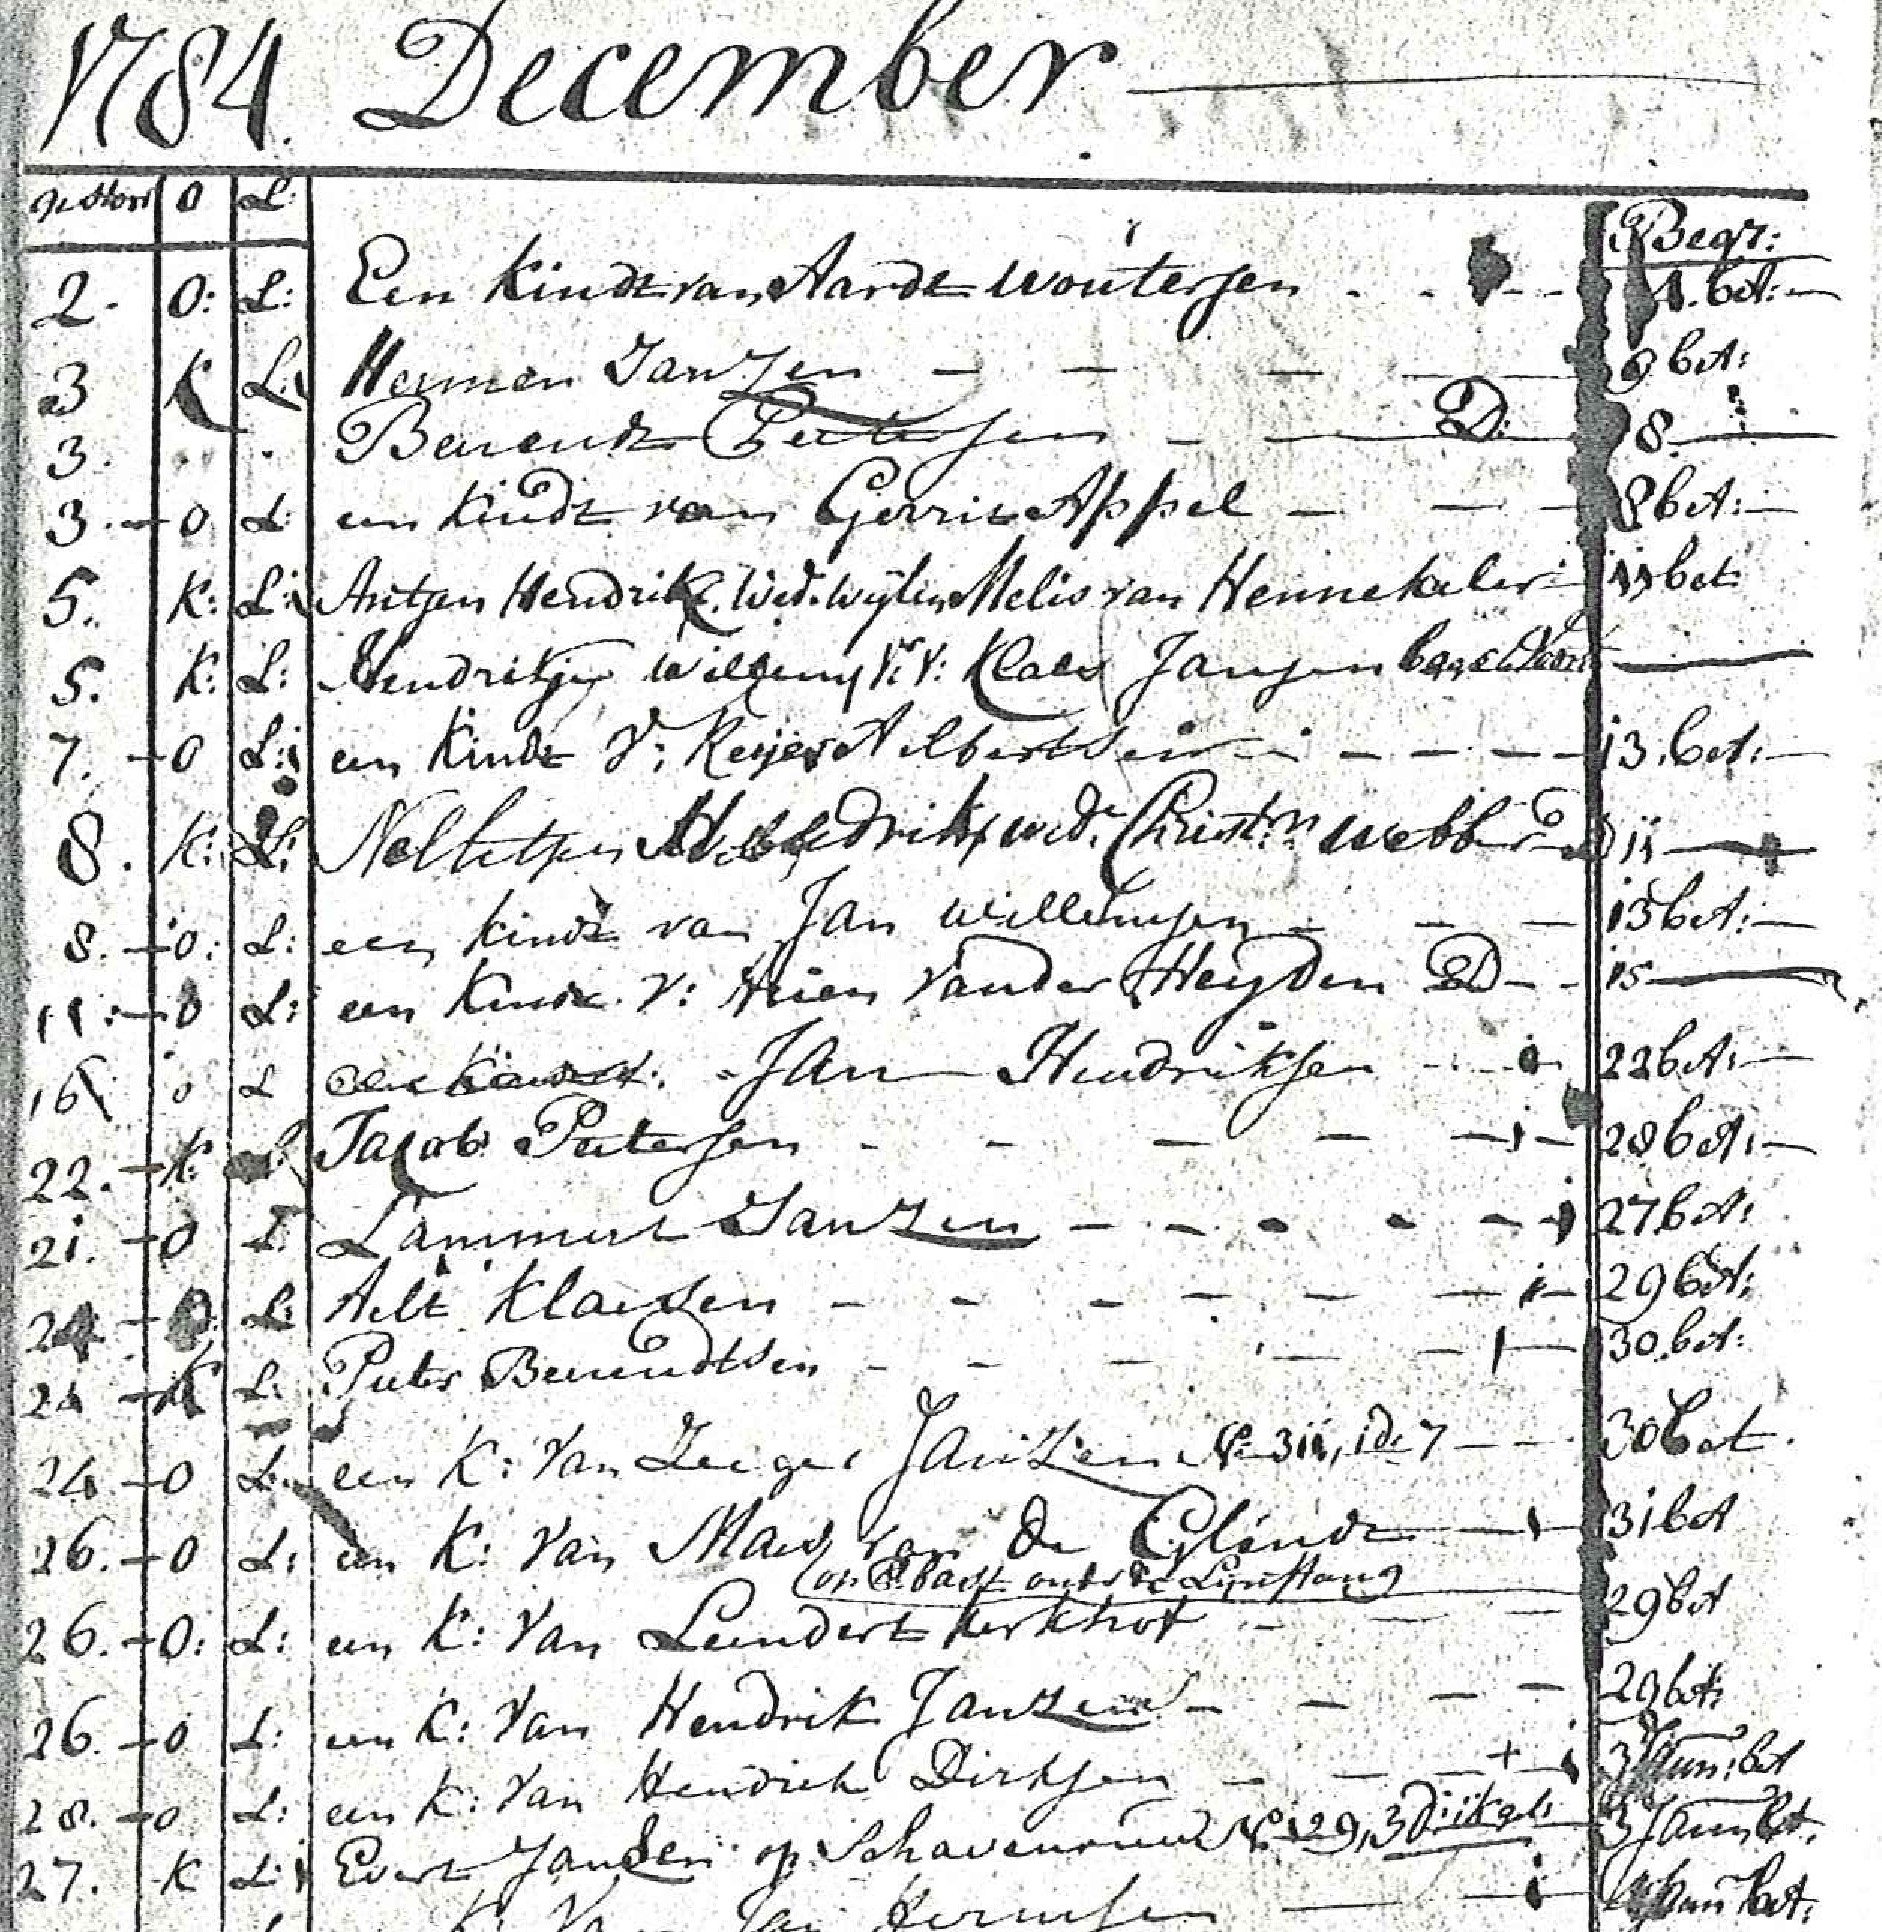 1784. December
O L: Begr:
2. O: L: Een Kindt van Aardt Woutersen 4. bet:
3 K L: Hermen Janzen 9 bet:
3. Berendt Peetersen D: 8.
3. O L: een kindt van Gerrit Appel 8 bet:
5. K: L: Antjen Hendriks Wed. Wylen Melis van Hennekeler 11 bet
5. K: L: Hendrikje Willems V: Klaas Jansen
7. O L: een Kindt V: Reijer Aelbertsen 13. bet:
8. K: L: Hendriks wed. Christ:n Webber 11
8. O: L: een kindt van Jan Willemsen 15 bet:
11. O L: een Kindt V: van der Heyden D 15
16 O L een Kindt V: Jan Hendriksen 22 bet:
22. K: L Jacob Peetersen 28 bet:
21. O L: Lammert Janzen 27 bet:
24 O: L: Aelt Klaesen 29 bet:
24 K L: Peter Berendtsen 30. bet:
24. O L: een K: Van Zeeger Janzen No 311, id: 7 30 bet.
26. O L: een K: Van Maas van de Eylandt 31 bet
26. O: L: een K: Van Leendert Kerkhof 29 bet
26. O L: een K: Van Hendrik Janzen 29 bet:
28. O L: een K: Van Hendrik Dirksen + 3 Jann: bet
27. K L: Evert Jansen op No 129, 3 3 Jann: bet.
K: Van Jan Hermsen Jann bet: